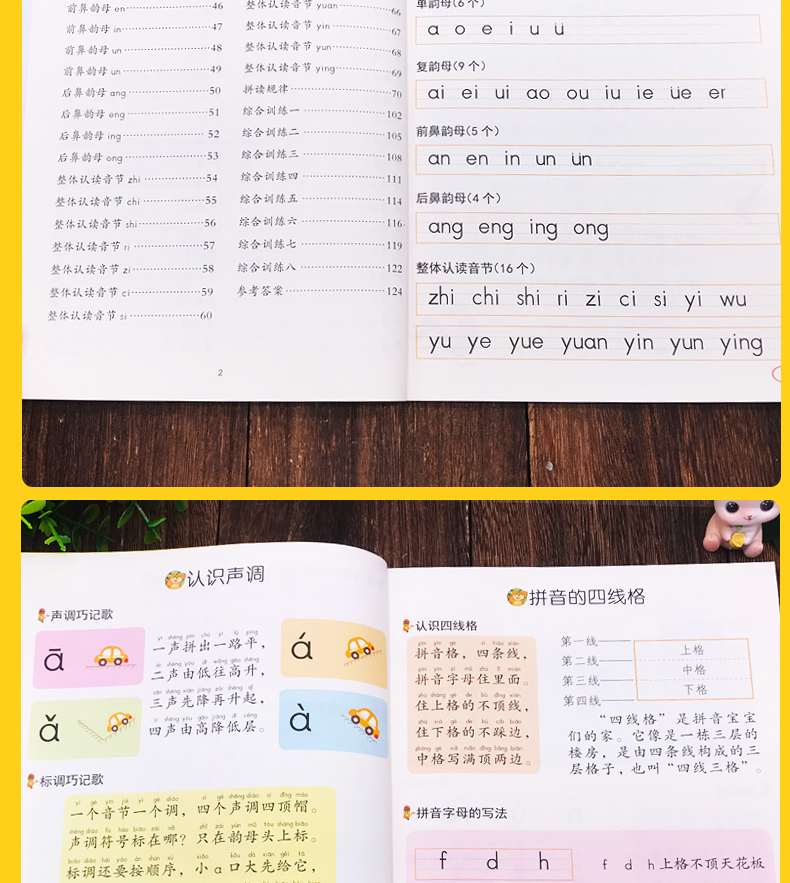 前鼻韵母 en 46
前鼻韵母 in 47
前鼻韵母 un 48
前鼻韵母 ün 49
后鼻韵母 ang 50
后鼻韵母 eng 51
后鼻韵母 ing 52
后鼻韵母 ong 53
整体认读音节 zhi 54
整体认读音节 chi 55
整体认读音节 shi 56
整体认读音节 ri 57
整体认读音节 zi 58
整体认读音节 ci 59
整体认读音节 si 60
整体认读音节 yuan 66
整体认读音节 yin 67
整体认读音节 yun 68
整体认读音节 ying 69
拼读规律 70
综合训练一 102
综合训练二 105
综合训练三 108
综合训练四 111
综合训练五 114
综合训练六 116
综合训练七 119
综合训练八 122
参考答案 124
2
单韵母(6 个)
a o e i u ü
复韵母(9 个)
ai ei ui ao ou iu ie üe er
前鼻韵母(5 个)
an en in un ün
后鼻韵母(4 个)
ang eng ing ong
整体认读音节(16 个)
zhi chi shi ri zi ci si yi wu
yu ye yue yuan yin yun ying
认识声调
声调巧记歌
ā
á
ǎ
à
一声拼出一路平，
二声由低往高升，
三声先降再升起，
四声由高降低层。
标调巧记歌
一个音节一个调，四个声调四顶帽。
声调符号标在哪？只在韵母头上标。
标调还要按顺序，小 ɑ 口大先给它，
拼音的四线格
认识四线格
拼音格，四条线，
拼音字母住里面。
住上格的不顶线，
住下格的不踩边，
中格写满顶两边。
第一线
第二线
第三线
第四线
上格
中格
下格
“四线格”是拼音宝宝
们的家。它像是一栋三层的
楼房，是由四条线构成的三
层格子，也叫“四线三格”。
拼音字母的写法
f d h
f d h 上格不顶天花板